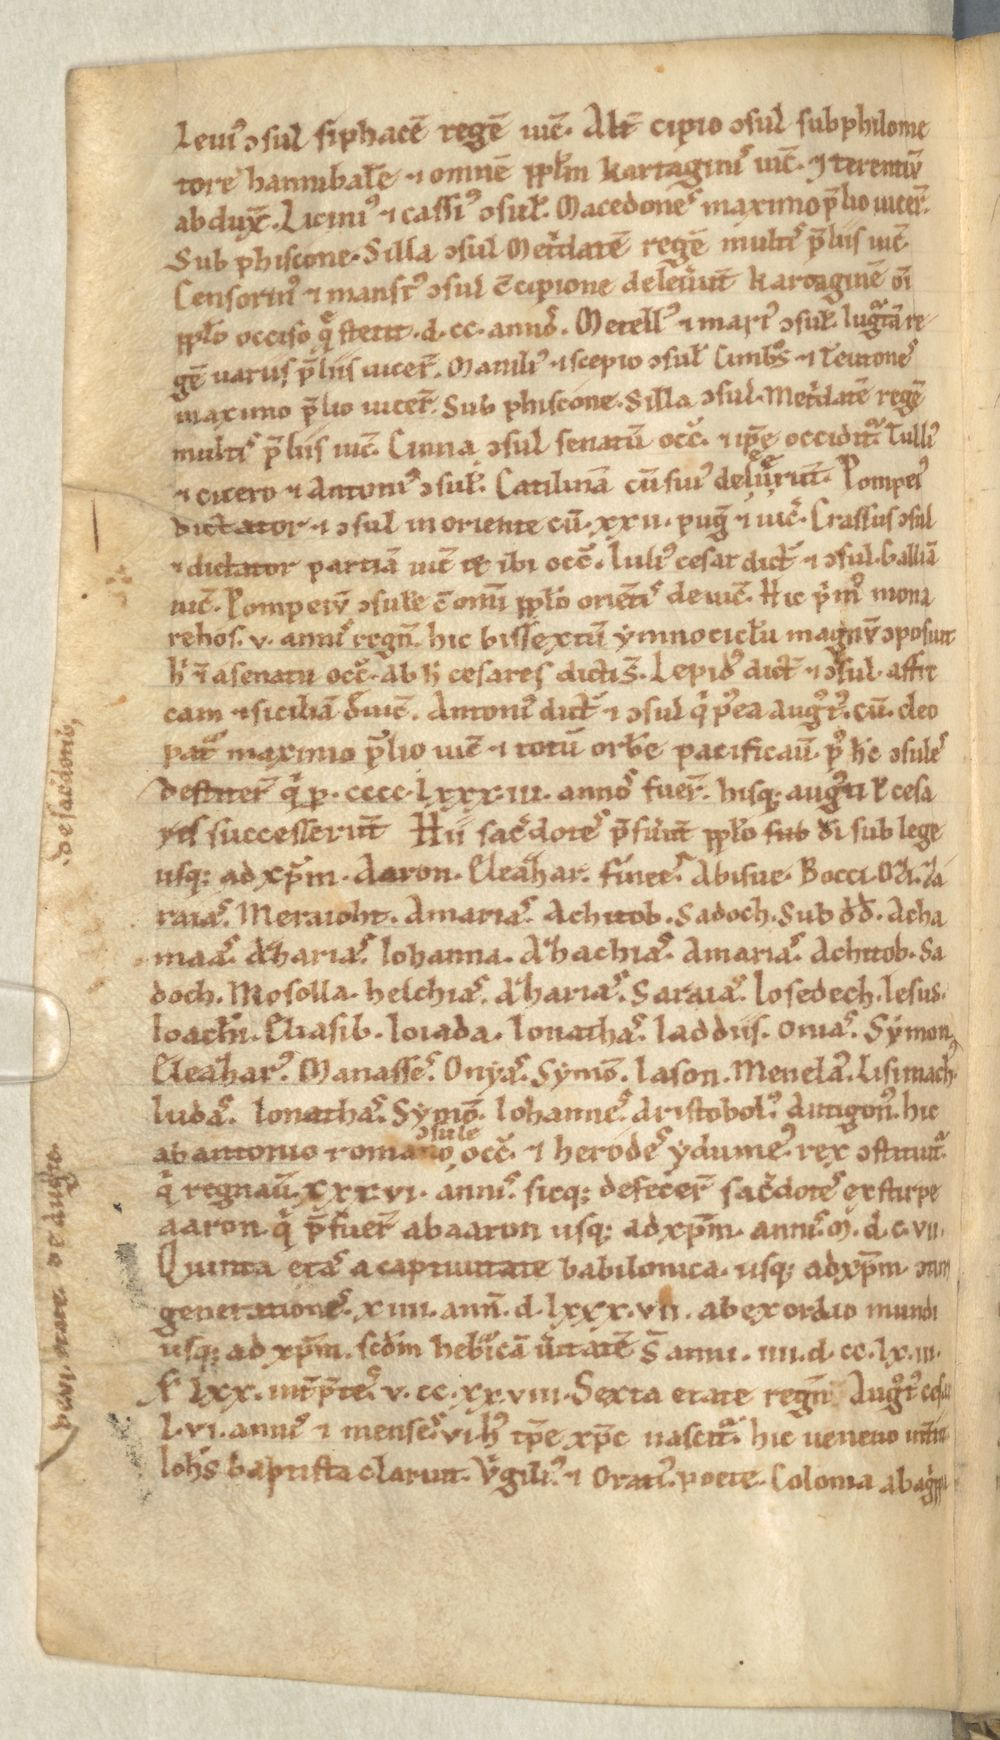 Leui᷒ ↄsul siphacē regē uic̄. Alt̄ cipio ↄsul sub philome
tore hannibałe ⁊ omnē ppłm kartagini᷒ uic̄. ⁊ terentiū
abdux̄. Licini᷒ ⁊ cassi᷒ ↄsuł. Macedone᷒ maximo p̄lio uicer̄.
Sub phiscone. Silla ↄsul Metͥdatē regē multi᷒ p̄liis uic̄.
Censorin᷒ ⁊ manst᷒ ↄsul c̄ cipione deleuer̄t kartaginē oı̄
ppło occiso q̄ stetit .d.cc. anno᷒. Metell᷒ ⁊ mari᷒ ↄsuł. Iugͬtā re
gē uariis p̄liis uicer̄. Manili᷒ ⁊ scepio ↄsuł Cimbͦs ⁊ teutone᷒
maximo p̄lio uicer̄. Sub phiscone. Silla ↄsul. Metͥdatē regē
multi᷒ p̄liis uic̄. Cinna ↄsul senatū occ̄. ⁊ ip̄e occidit᷑. Tulli᷒
⁊ cicero ⁊ Antoni᷒ ↄsuł. Catilinā cū sui᷒ deleuer̄t. Pompei᷒
dictator ⁊ ↄsul in oriente cū .xxii. pug̅ ⁊ uic̄. Crassus ↄsul
⁊ dictator partiā uic̄ ibi occ̄. Iuli᷒ cesar dict̄ ⁊ ↄsul. Galliā
uic̄. Pompeiū ↄsule c̄ omı̄ ppło oriēti᷒ deuic̄. Hic pͥm᷒ mona
rehos .v. anni᷒ regn̄. hic bissextū ymnociclu magnū ↄposuit
h̄ ı̄ asenatu occ̄. Ab h̄ cesares dicti s̄. Lepid᷒ dict̄ ⁊ ↄsul. affri
cam ⁊ siciliā diuic̄. Antoni᷒ dict̄ ⁊ ↄsul qͥ p᷒ea augͦt᷒. cū. cleo
pat̄ maximo p̄lio uic̄ ⁊ totū orbē pacificauı̄. p᷒ h̄c ↄsule᷒
destiter̄ qͥ p. cccc.lxxx.iii. anno᷒ fuer̄. hisq; augͦti ł cesa
res successerūt Hii sac̄dote᷒ p̄fuer̄t ppło dı̄ sub lege
usq; ad xp̄m. Aaron. Eleaͨhar. finee᷒. Abisue. Bocci. Oͨi. ͨa
raia᷒. Meraioht. Amaria᷒. Achitob. Sadoch. Sub dd̄. Acha
maa᷒. Aͨharia᷒. Iohanna. Aͨhachia᷒. Amaria᷒. Achitob. Sa
doch. Mosolla. helchia᷒. Aͨharia᷒. Saraia᷒. Iosedech. Iesus.
Ioachī. Eliasib. Ioiada. Ionatha᷒. Iaddus. Onia᷒. Symon᷒
Eleaͨhar᷒. Manasse᷒. Onya᷒. Symō. Iason. Menela᷒. Lisimach᷒
Iuda᷒. Ionatha᷒. Symō. Iohanne᷒. Aristobol᷒. Antigon᷒. hic
ab antonio romano ↄsule occ̄. ⁊ herode᷒ ydume᷒. rex ↄstituit᷑
qͥ regnauı̄. xxxvi. anni᷒. sicq; defecer̄ sac̄dote᷒ ex stirpe
aaron. qͥ p̄fuer̄ ab aaron usq; ad xp̄m. anni᷒ .M.d.c.vii.
Quinta eta᷒ a captiuitate babilonica. usq; ad xp̄m.
generatione᷒. xiiii. ann̄. d.lxxx.vii. ab exordio mundi
usq; ad xp̄m. scdm̄ hebͣicā ūitatē s̄ anni. iiii.d.cc.lx.iii.
lxx. int̄p̄te᷒. v.cc.xxviii. Sexta etate regn̄ Augͦt᷒ cesar
l.vi. anni᷒ ⁊ mense᷒ vi. h᷒ tp̄e xp̄c nascit᷑. hic ueneno int̄iit
Ioh̄s baptista claruit. Ūgili᷒ ⁊ Orati᷒. poete. Colonia ab agͥppa
de sac̄dotib᷒
de vi. etate. de augͦto.